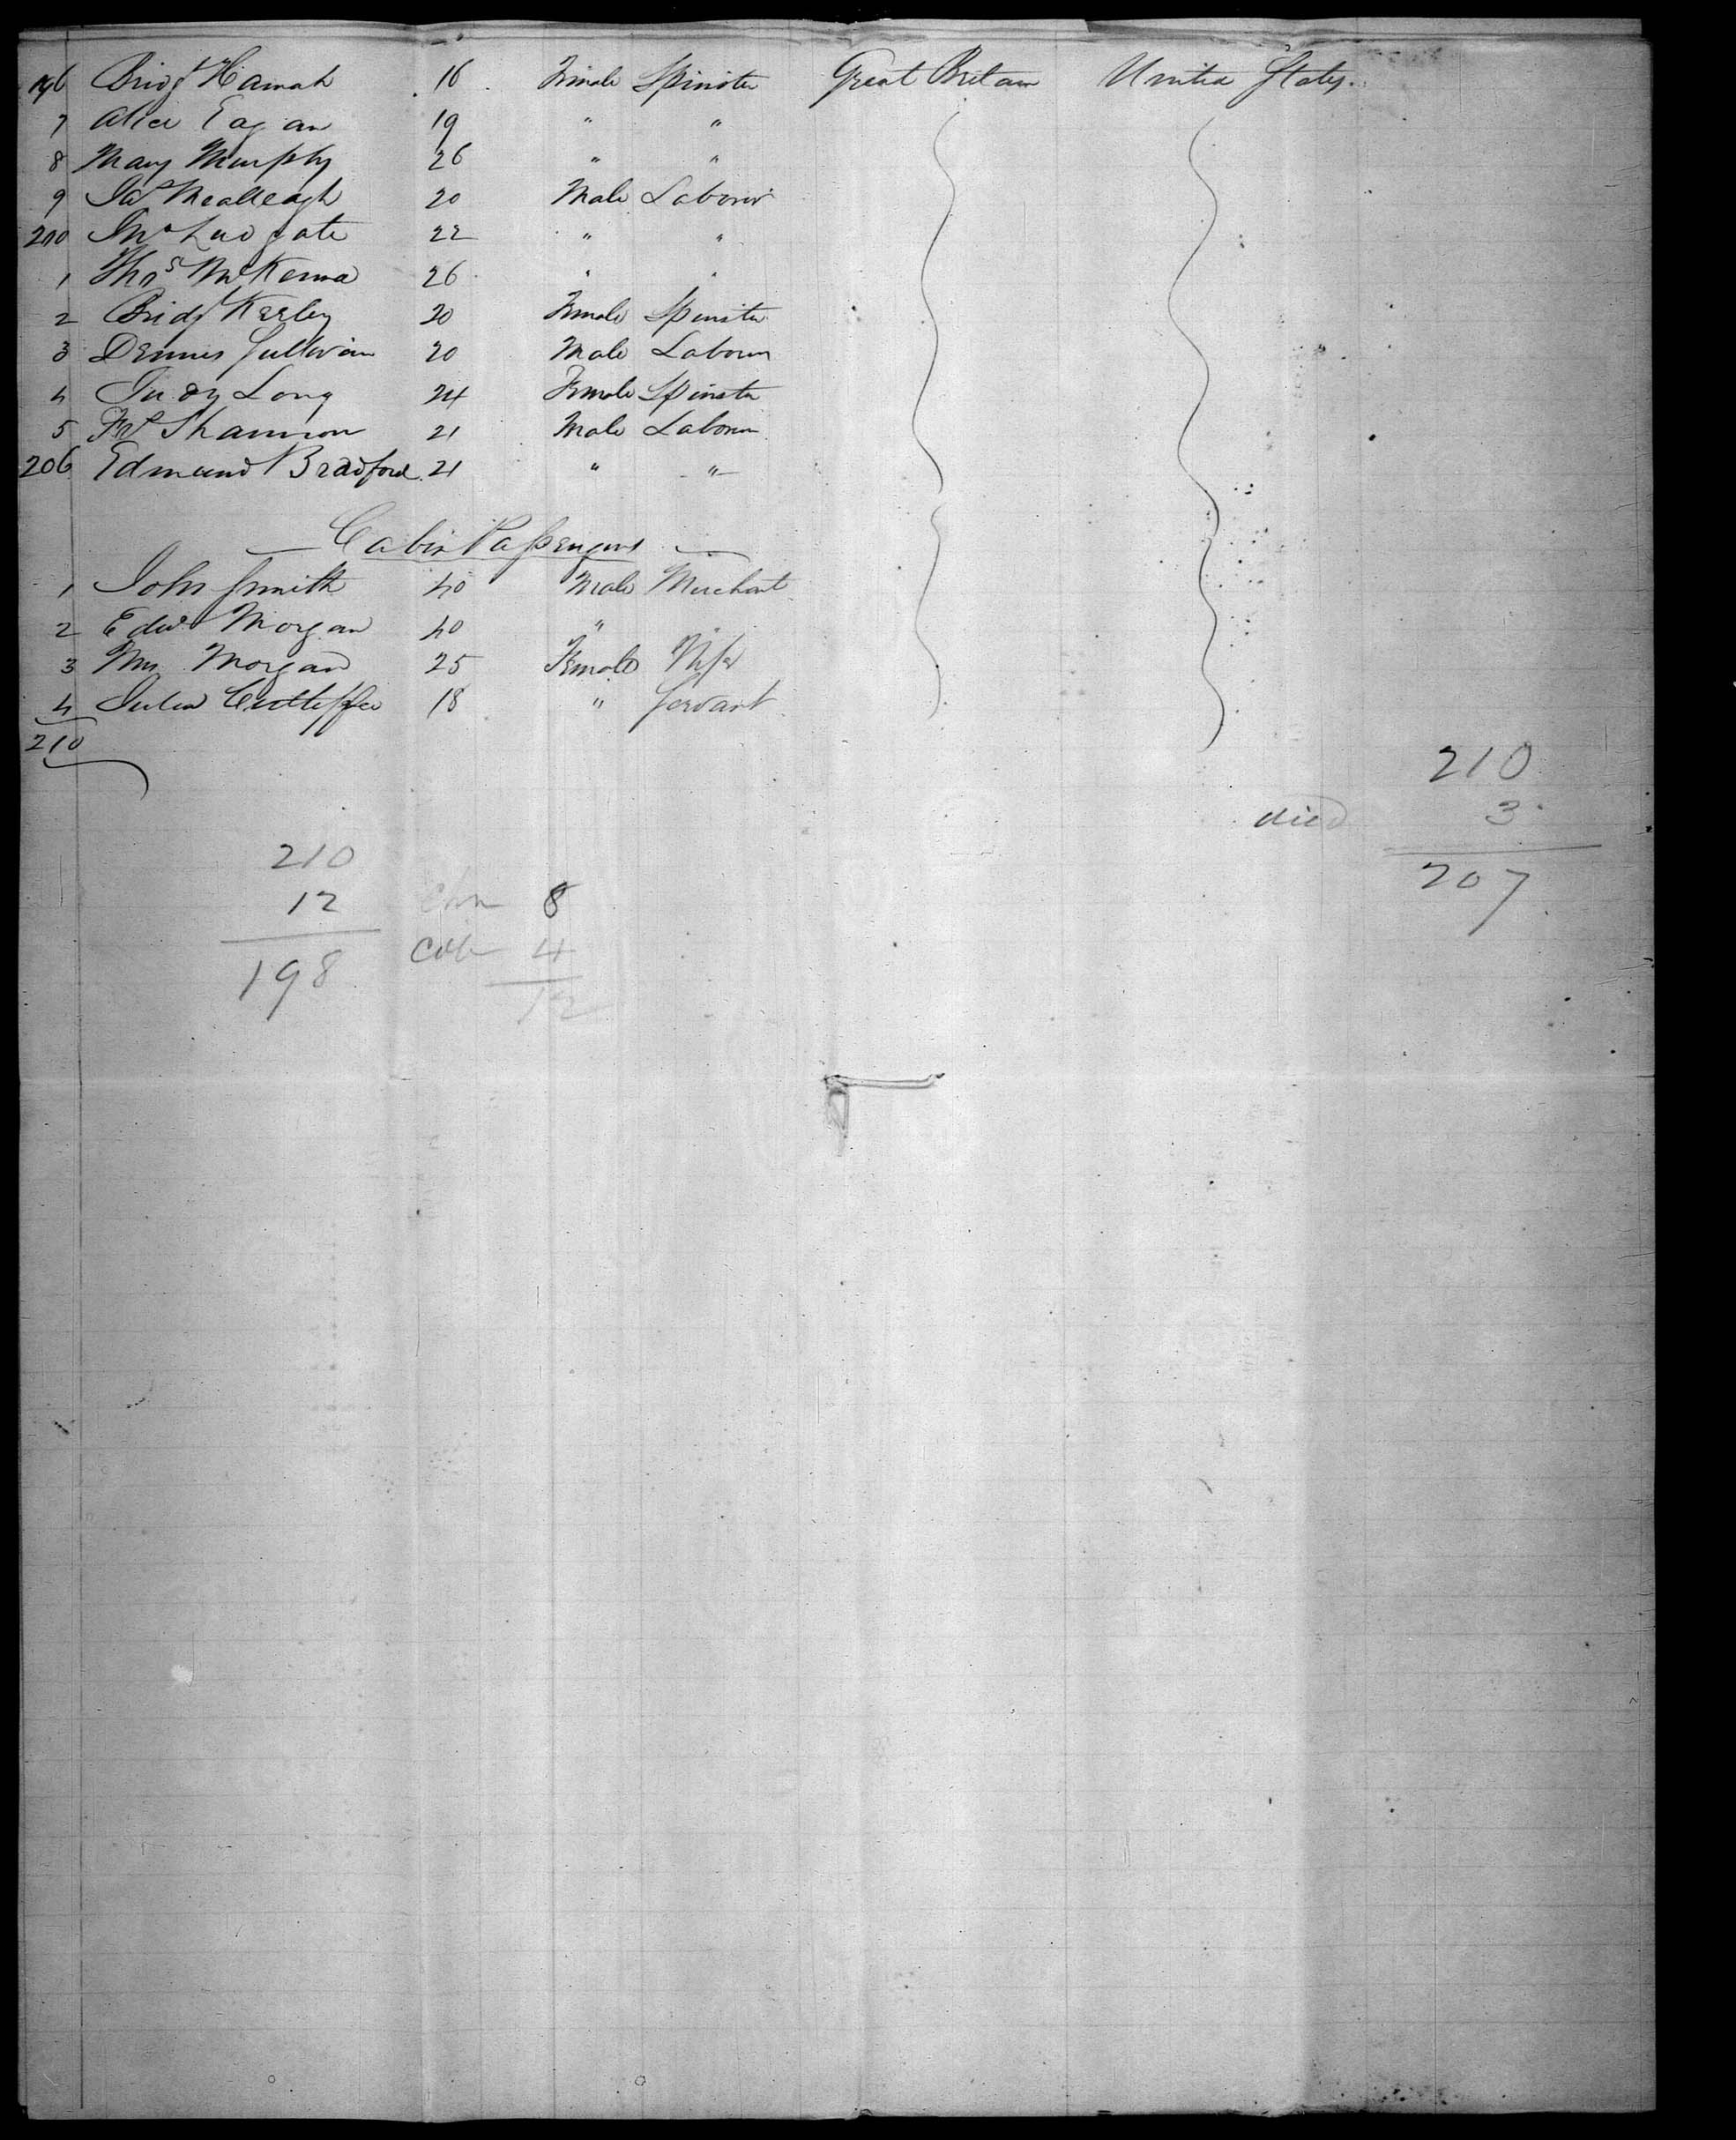 196 Bridgt Hannah 16 Female Spinster Great Britain United States.
7 Alice Eagan 19 " "
8 Mary Murphy 26 " "
9 Jas 20 Male Labourer
200 Jno Ludgate 22 " "
1 Thos McKenna 26 " "
2 Bridgt Kerley 20 Female Spinster
3 Dennis Sullivan 20 Male Labourer
4 Judy Long 24 Female Spinster
5 Shannon 21 Male Labourer
206 Edmund Bradford 21 " "
Cabin Passengers
1 John Smith 40 Male Merchant
2 Edwd Morgan 40 " "
3 Mrs Morgan 25 Female Wife
4 Julia 18 " Servant
210
210
died 3
207
210
12 chn 8
198 cab 4
12